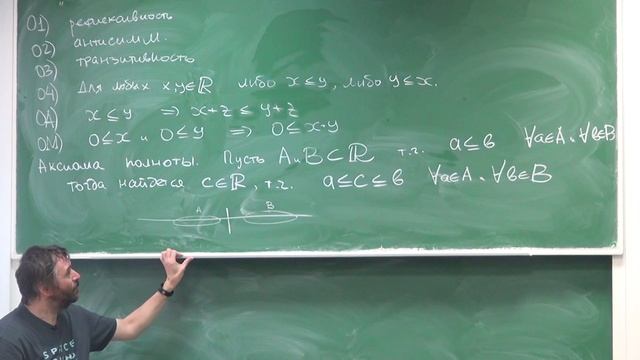 O1) рефлексивность
O2) антисимм.
O3) транзитивность
O4) Для любых x,y∈ℝ либо x≤y, либо y≤x.
OA) x≤y ⇒ x+z ≤ y+z
OM) 0≤x и 0≤y ⇒ 0≤x·y
Аксиома полноты. Пусть A и B⊂ℝ т.ч. a≤b ∀a∈A, ∀b∈B
тогда найдется c∈ℝ, т.ч. a≤c≤b ∀a∈A, ∀b∈B
A B
SPACE